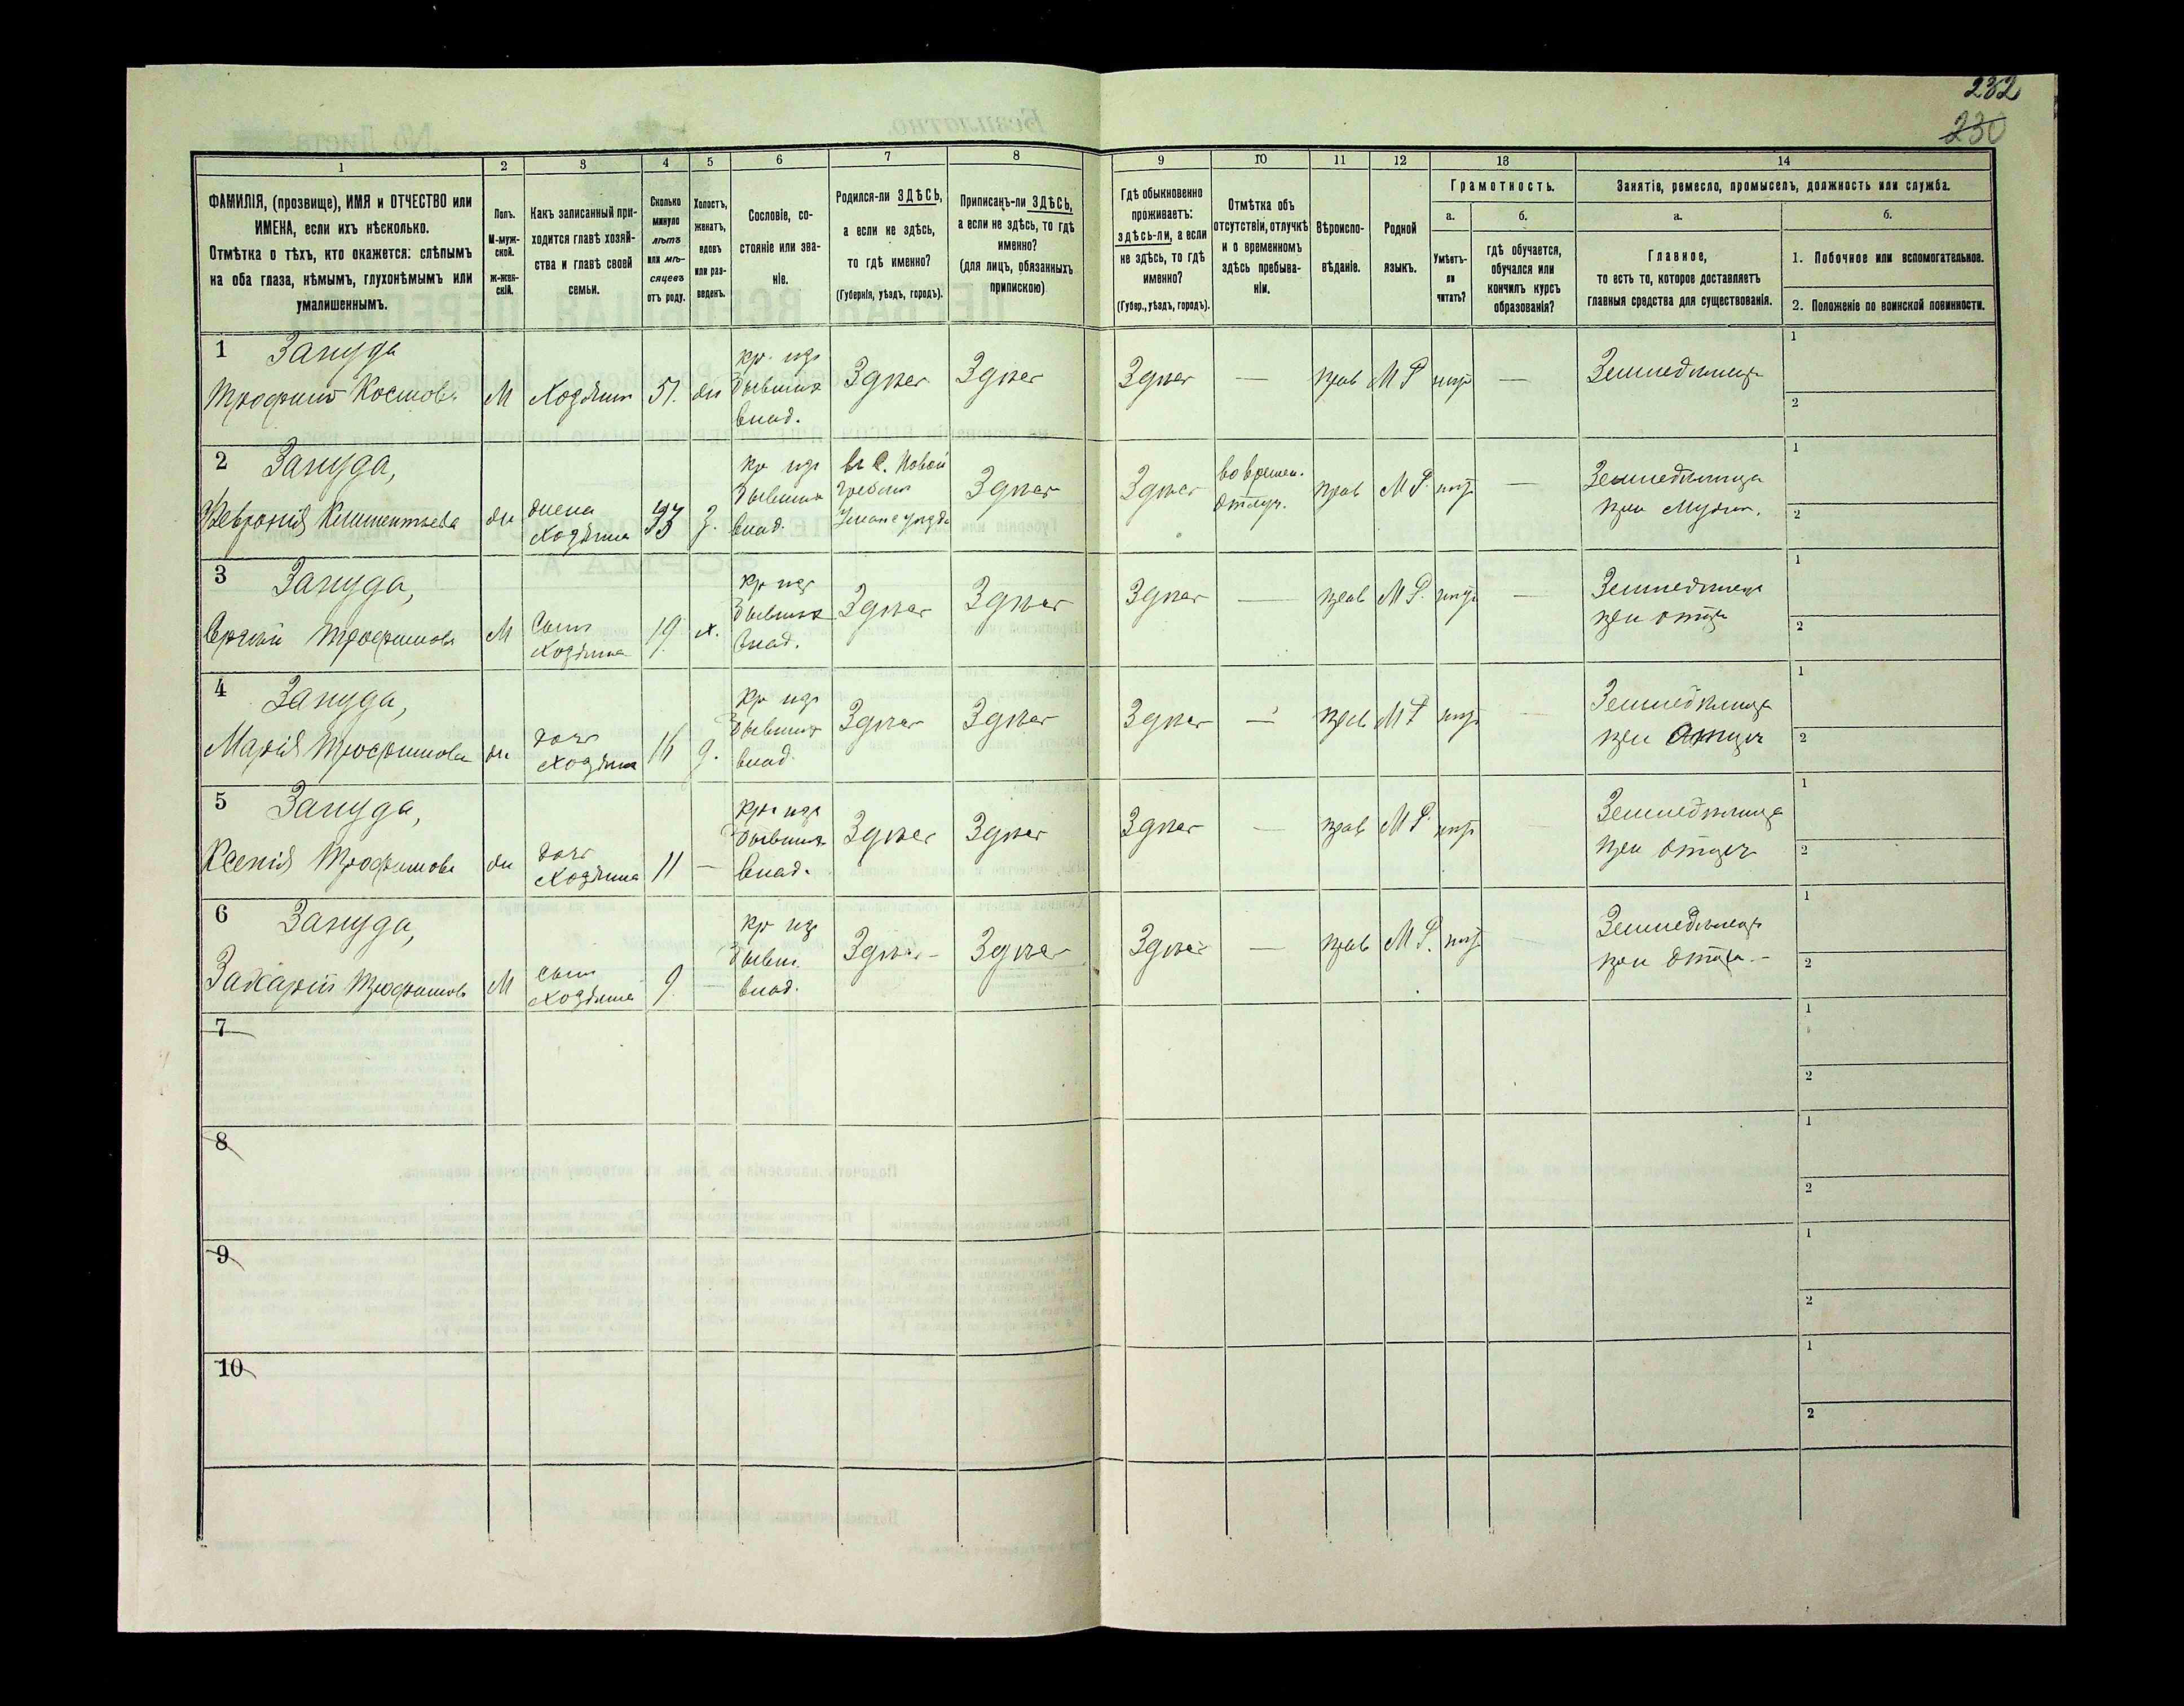 232
230
1 2 3 4 5 6 7 8 9 10 11 12 13 14
ФАМИЛІЯ, (прозвище), ИМЯ и ОТЧЕСТВО или ИМЕНА, если ихъ нѣсколько.
Отмѣтка о тѣхъ, кто окажется: слѣпымъ на оба глаза, нѣмымъ, глухонѣмымъ или умалишеннымъ.
Полъ.
М-муж-
ской.
ж-жен-
скій.
Какъ записанный при-
ходится главѣ хозяй-
ства и главѣ своей
семьи.
Сколько
минуло
лѣтъ
или мѣ-
сяцевъ
отъ роду.
Холостъ,
женатъ,
вдовъ
или раз-
веденъ.
Сословіе, со-
стояніе или зва-
ніе.
Родился-ли ЗДѢСЬ,
а если не здѣсь,
то гдѣ именно?
(Губернія, уѣздъ, городъ).
Приписанъ-ли ЗДѢСЬ,
а если не здѣсь, то гдѣ
именно?
(для лицъ, обязанныхъ
припискою)
Гдѣ обыкновенно
проживаетъ:
здѣсь-ли, а если
не здѣсь, то гдѣ
именно?
(Губер., уѣздъ, городъ).
Отмѣтка объ
отсутствіи, отлучкѣ
и о временномъ
здѣсь пребыва-
ніи.
Вѣроиспо-
вѣданіе.
Родной
языкъ.
Грамотность.
а.
Умѣетъ-
ли
читать?
б.
гдѣ обучается,
обучался или
кончилъ курсъ
образованія?
Занятіе, ремесло, промыселъ, должность или служба.
а.
Главное,
то есть то, которое доставляетъ
главныя средства для существованія.
б.
1. Побочное или вспомогательное.
2. Положеніе по воинской повинности.
1 Запуда
Трофимъ Костовъ М Хозяинъ 51. ж кр. изъ бывших влад. Здѣсь Здѣсь Здѣсь — прав М Р нѣтъ — Земледѣлецъ 1 2
2 Запуда,
Февронія Климентьева ж жена хозяина 33 з. кр изъ бывших влад. въ с. Новой Гребли Уманс уѣзда Здѣсь Здѣсь во времен. отлуч. прав М Р. нѣтъ — Земледѣлица при Мужѣ. 1 2
3 Запуда,
Трофимовъ М Сынъ хозяина 19. х. кр изъ бывших влад. Здѣсь Здѣсь Здѣсь — прав М Р. нѣтъ — Земледѣлецъ при отцѣ 1 2
4 Запуда,
Марія Трофимова ж дочь хозяина 16 д. кр изъ бывших влад. Здѣсь Здѣсь Здѣсь — прав М Р нѣтъ — Земледѣлица при отцѣ 1 2
5 Запуда,
Ксенія Трофимова ж дочь хозяина 11 — кр изъ бывших влад. Здѣсь Здѣсь Здѣсь — прав М Р. нѣтъ — Земледѣлица при отцѣ 1 2
6 Запуда,
Захарій Трофимовъ М сынъ хозяина 9. — кр изъ бывш. влад. Здѣсь — Здѣсь Здѣсь — прав М Р. нѣтъ — Земледѣлецъ при отцѣ. — 1 2
7 1 2
8 1 2
9 1 2
10 1 2